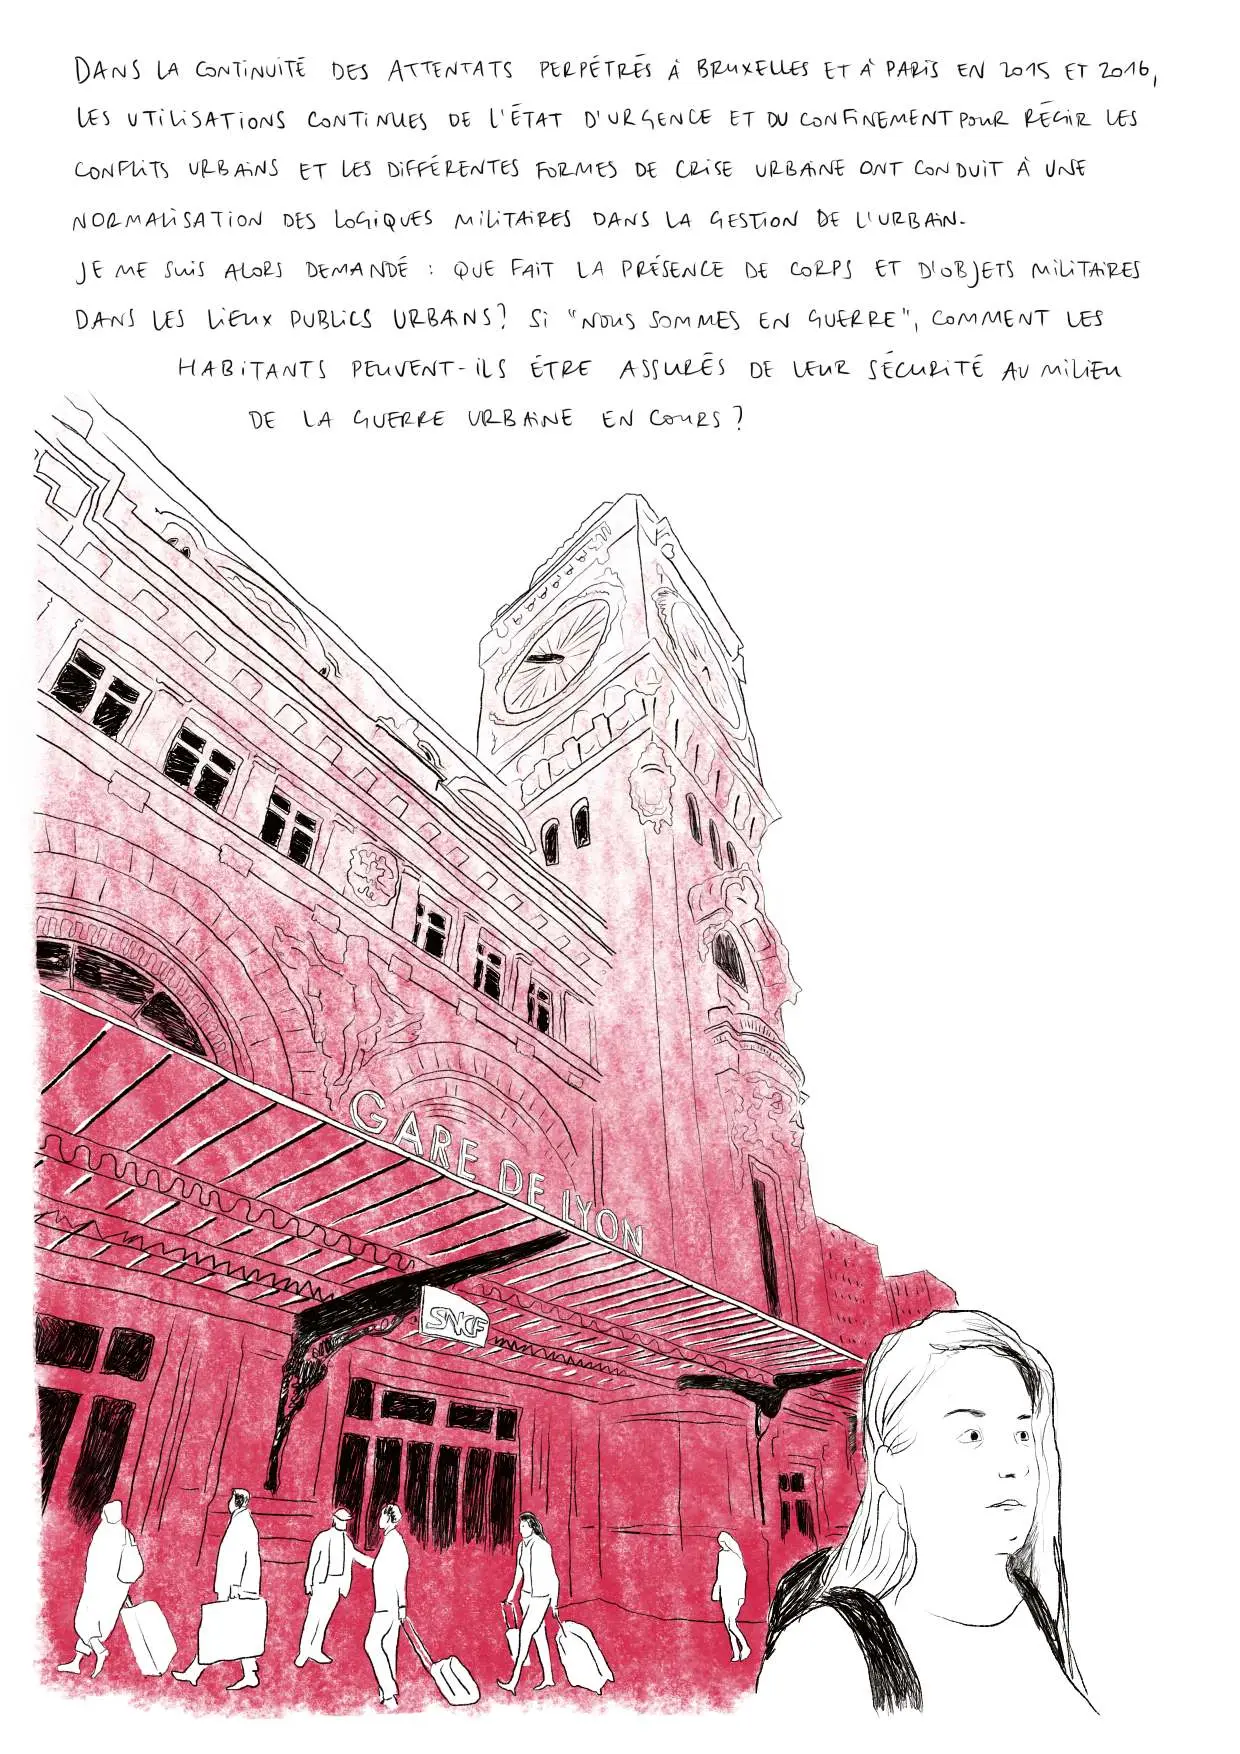 DANS LA CONTINUITÉ DES ATTENTATS PERPÉTRÉS À BRUXELLES ET À PARIS EN 2015 ET 2016,
LES UTILISATIONS CONTINUES DE L'ÉTAT D'URGENCE ET DU CONFINEMENT POUR RÉGIR LES
CONFLITS URBAINS ET LES DIFFÉRENTES FORMES DE CRISE URBAINE ONT CONDUIT À UNE
NORMALISATION DES LOGIQUES MILITAIRES DANS LA GESTION DE L'URBAIN.
JE ME SUIS ALORS DEMANDÉ : QUE FAIT LA PRÉSENCE DE CORPS ET D'OBJETS MILITAIRES
DANS LES LIEUX PUBLICS URBAINS? SI "NOUS SOMMES EN GUERRE", COMMENT LES
HABITANTS PEUVENT-ILS ÊTRE ASSURÉS DE LEUR SÉCURITÉ AU MILIEU
DE LA GUERRE URBAINE EN COURS?
GARE DE LYON
SNCF